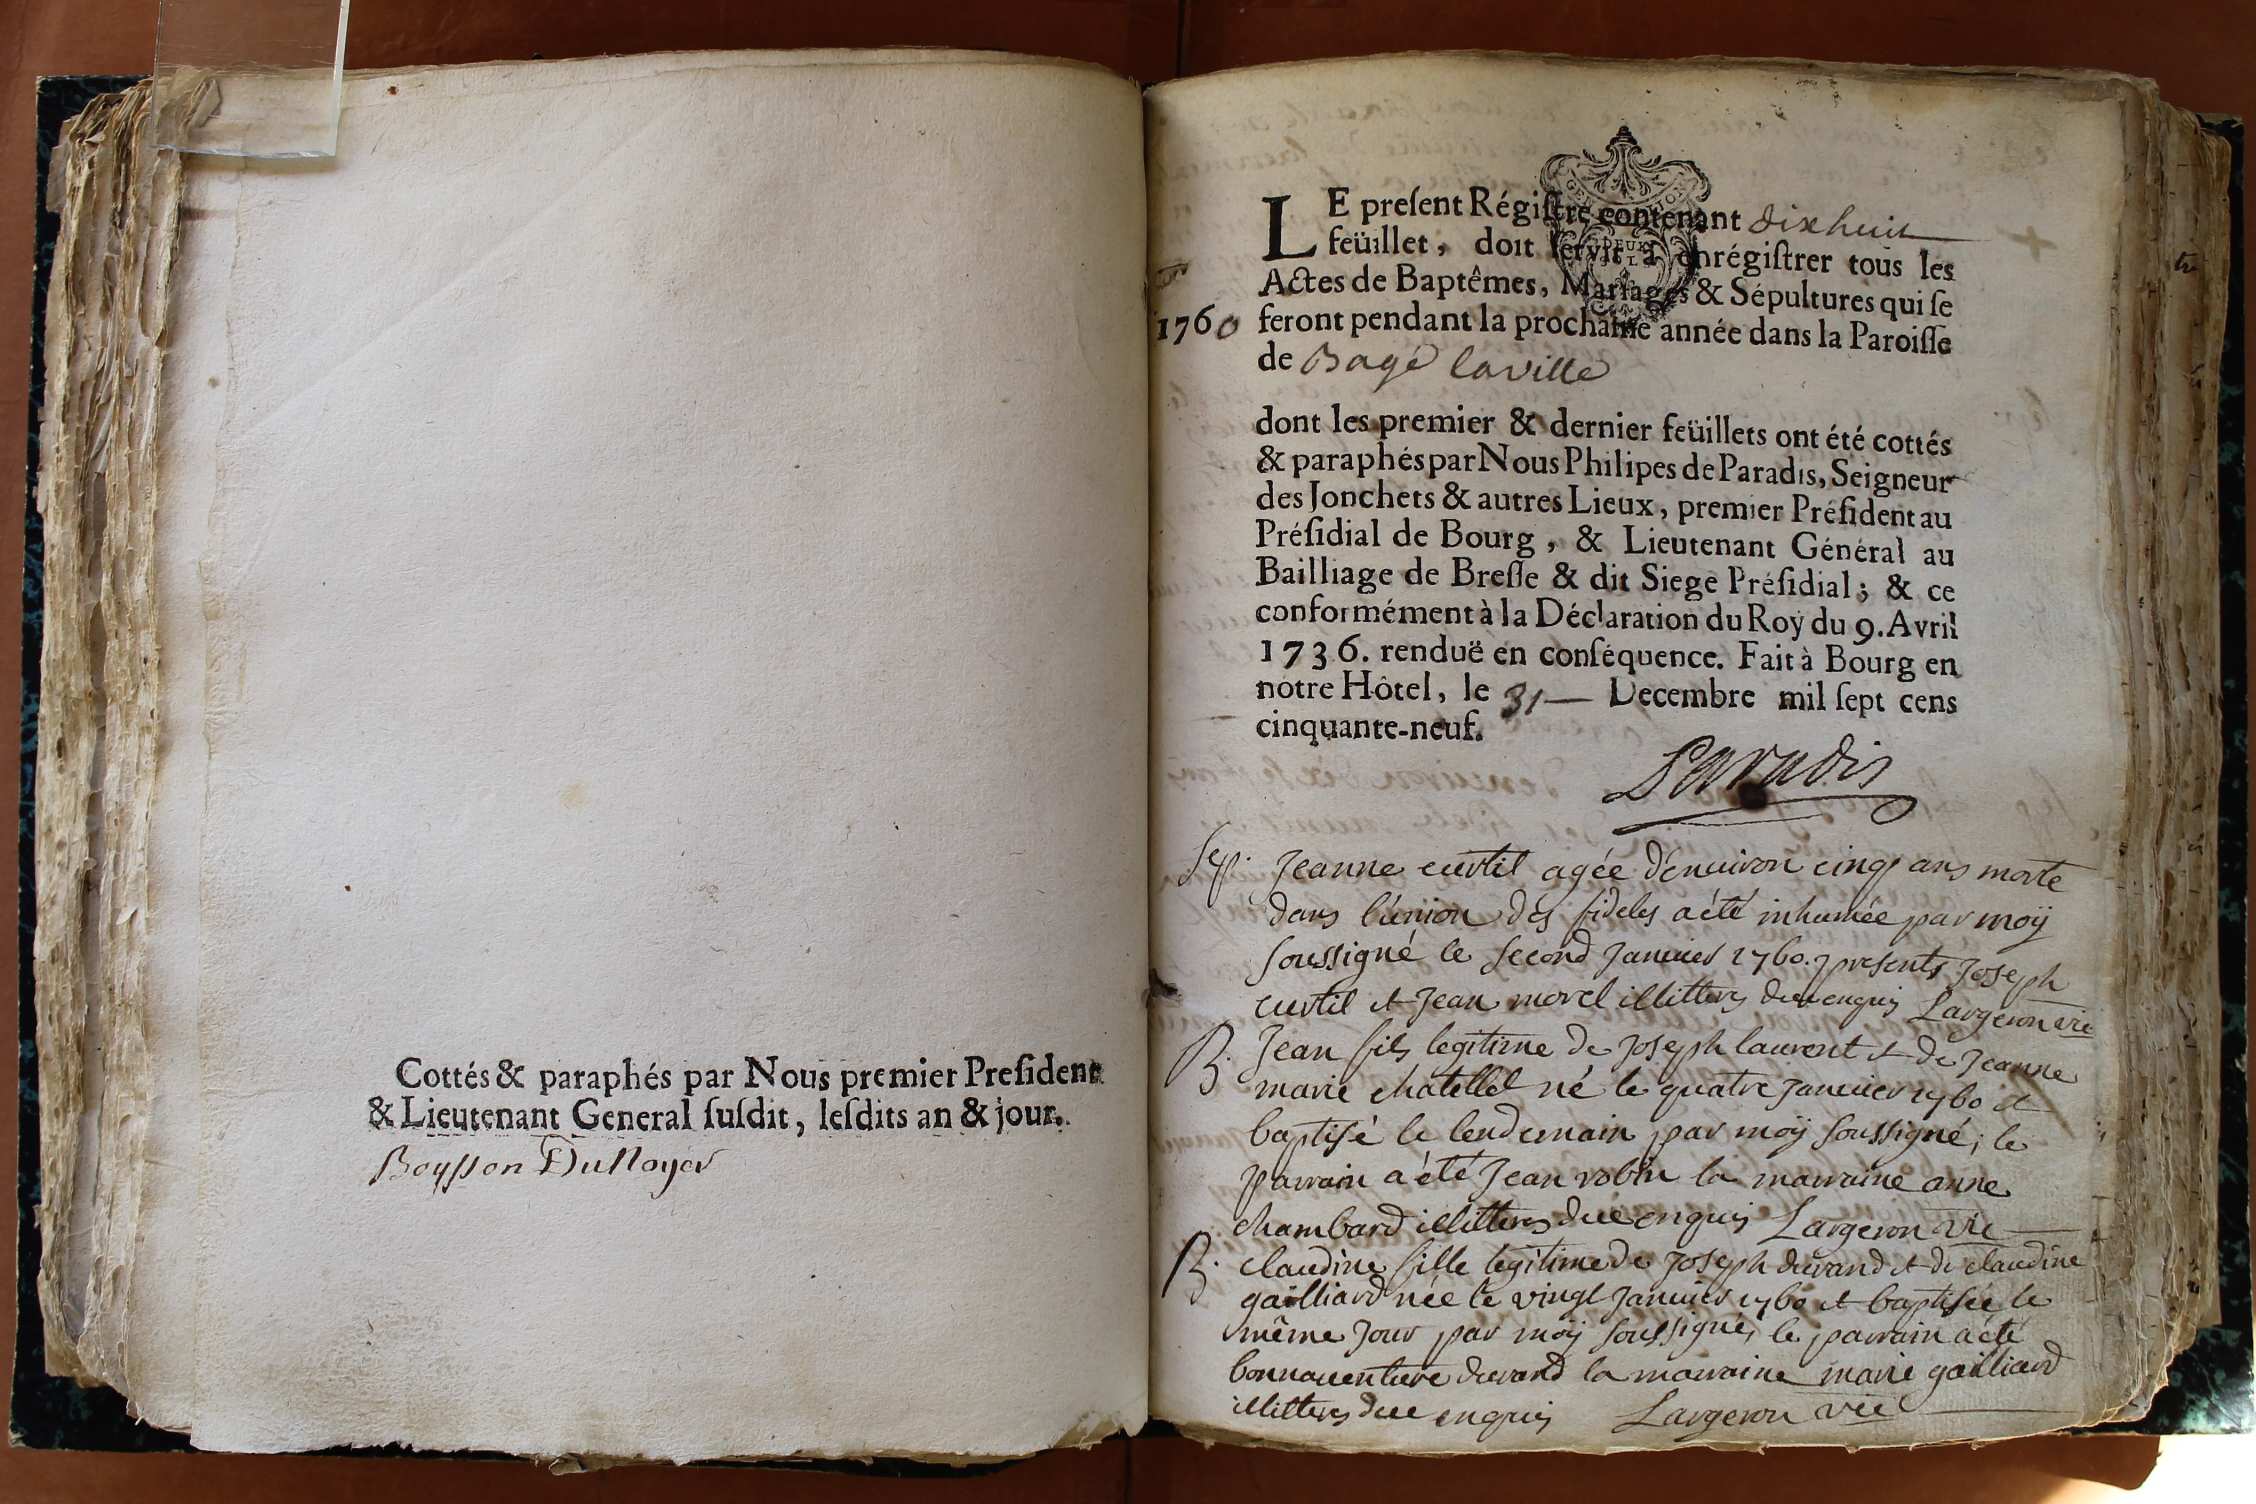 Cottés & paraphés par Nous premier Preſident
& Lieutenant General ſuſdit, leſdits an & jour.
Boysson Dunoyer
LE preſent Régiſtre contenant dixhuit
feüillet, doit ſervir à enrégiſtrer tous les
Actes de Baptêmes, Mariages & Sépultures qui ſe
1760 feront pendant la prochaine année dans la Paroiſſe
de Bagé laville
dont les premier & dernier feüillets ont été cottés
& paraphés par Nous Philipes de Paradis, Seigneur
des Jonchets & autres Lieux, premier Préſident au
Préſidial de Bourg, & Lieutenant Général au
Bailliage de Breſſe & dit Siege Préſidial; & ce
conformément à la Déclaration du Roy du 9. Avril
1736. renduë en conſéquence. Fait à Bourg en
notre Hôtel, le 31 Decembre mil ſept cens
cinquante-neuf.
Paradis
Sep. Jeanne curtil agée d'enuiron cinq ans morte
dans l'union des fideles a été inhumée par moÿ
soussigné le second Januier 1760. presents Joseph
curtil et Jean morel illitterés de ce enquis Largeron vic
B. Jean fils legitime de Joseph laurent et de Jeanne
marie chatellet né le quatre januier 1760 et
baptisé le lendemain par moÿ soussigné; le
parrain a été Jean robin la marraine anne
chambard illitterés de ce enquis Largeron vic
B. claudine fille legitime de Joseph durand et de claudine
gailliard née le vingt januier 1760 et baptisée le
même jour par moÿ soussigné, le parrain a été
bonnauenture durand la marraine marie gailliard
illitterés de ce enquis Largeron vic